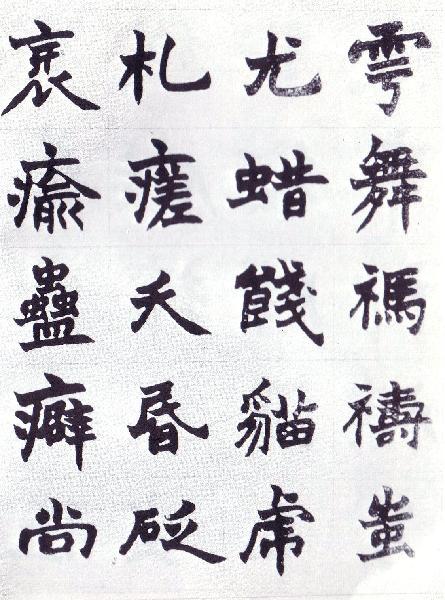 雩舞禡禱蚩
尤蜡餞貓虎
札瘥夭昏砭
瘉蠱癖尚